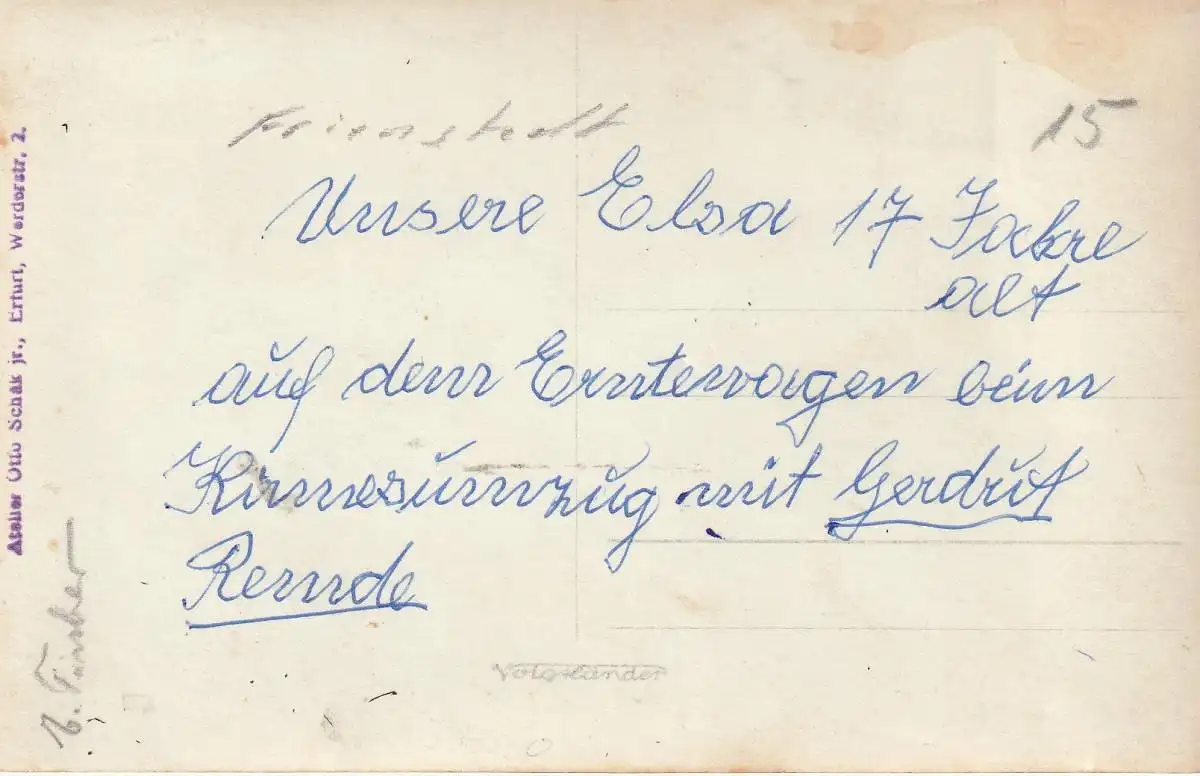 Frienstedt
15
Unsere Elsa 17 Jahre
alt
auf dem Erntewagen beim
Kirmesumzug mit Gerdrut
Remde
Voigtländer
Atelier Otto Schák jr., Erfurt, Werderstr. 2.